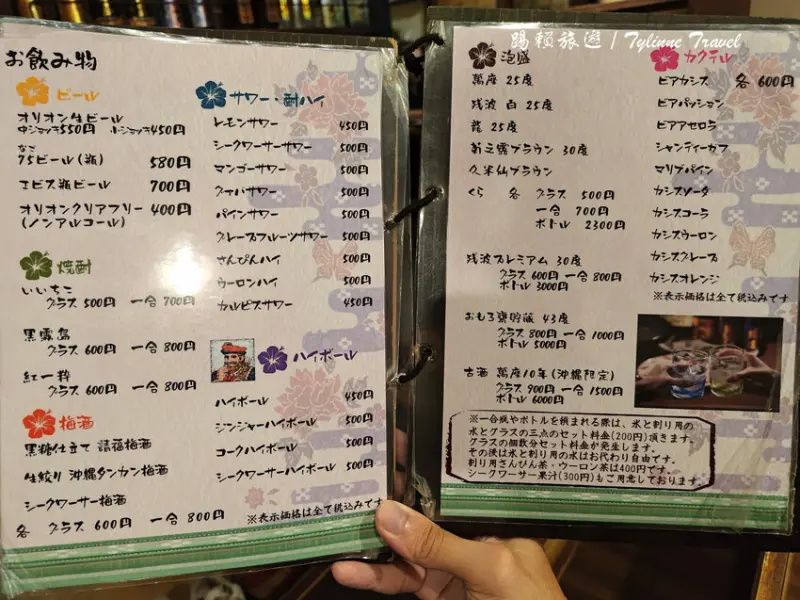 お飲み物
ビール
オリオン生ビール
中ジョッキ550円 小ジョッキ450円
なご
75ビール(瓶) 580円
エビス瓶ビール 700円
オリオンクリアフリー 400円
(ノンアルコール)
焼酎
いいちこ
グラス 500円 一合 700円
黒霧島
グラス 600円 一合 800円
紅一粋
グラス 600円 一合 800円
梅酒
黒糖仕立て 請福梅酒
生絞り 沖縄タンカン梅酒
シークワーサー梅酒
各 グラス 600円 一合 800円
サワー・酎ハイ
レモンサワー 450円
シークワーサーサワー 500円
マンゴーサワー 500円
グァバサワー 500円
パインサワー 500円
グレープフルーツサワー 500円
さんぴんハイ 500円
ウーロンハイ 500円
カルピスサワー 450円
ハイボール
ハイボール 450円
ジンジャーハイボール 500円
コークハイボール 500円
シークワーサーハイボール 500円
※表示価格は全て税込みです
踢賴旅遊 / Tylinne Travel
泡盛
萬座 25度
残波 白 25度
龍 25度
菊之露ブラウン 30度
久米仙ブラウン
くら 各 グラス 500円
一合 700円
ボトル 2300円
残波プレミアム 30度
グラス 600円 一合 800円
ボトル 3000円
おもろ甕貯蔵 43度
グラス 800円 一合 1000円
ボトル 5000円
古酒 萬座10年(沖縄限定)
グラス 900円 一合 1500円
ボトル 6000円
カクテル
ビアカシス 各 600円
ビアパッション
ビアアセロラ
シャンディーガフ
マリブパイン
カシスソーダ
カシスコーラ
カシスウーロン
カシスグレープ
カシスオレンジ
※表示価格は全て税込みです
※一合瓶やボトルを頼まれる際は、氷と割り用の
水とグラスの三点のセット料金(200円)頂きます。
グラスの個数分セット料金が発生します。
その後は氷と割り用の水はお代わり自由です。
割り用さんぴん茶・ウーロン茶は400円です。
シークワーサー果汁(300円)もご用意しております。